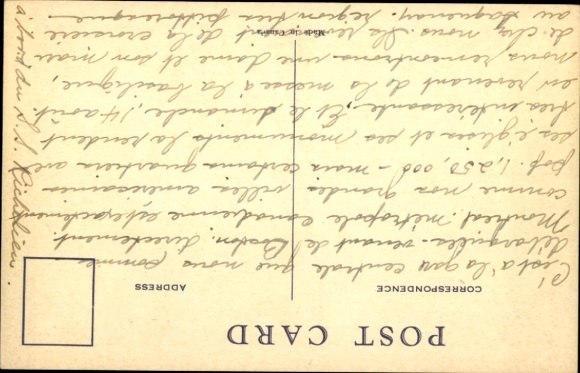 POST CARD
CORRESPONDENCE
ADDRESS
C'est à la gare centrale que nous sommes
débarqués venant de Boston directement.
Montreal métropole canadienne est exactement
comme nos grandes villes américaines
pop. 1,250,000 - mais certains quartiers avec
ses églises et ses monuments la rendent
très intéressante. Et le dimanche, 14 août
en revenant de la messe à la basilique,
nous rencontrons une dame et son mari
de chez nous. Ils revenaient de la croisière
au Saguenay. région très pittoresque
Made in Canada
à bord du S.S. Richelieu.